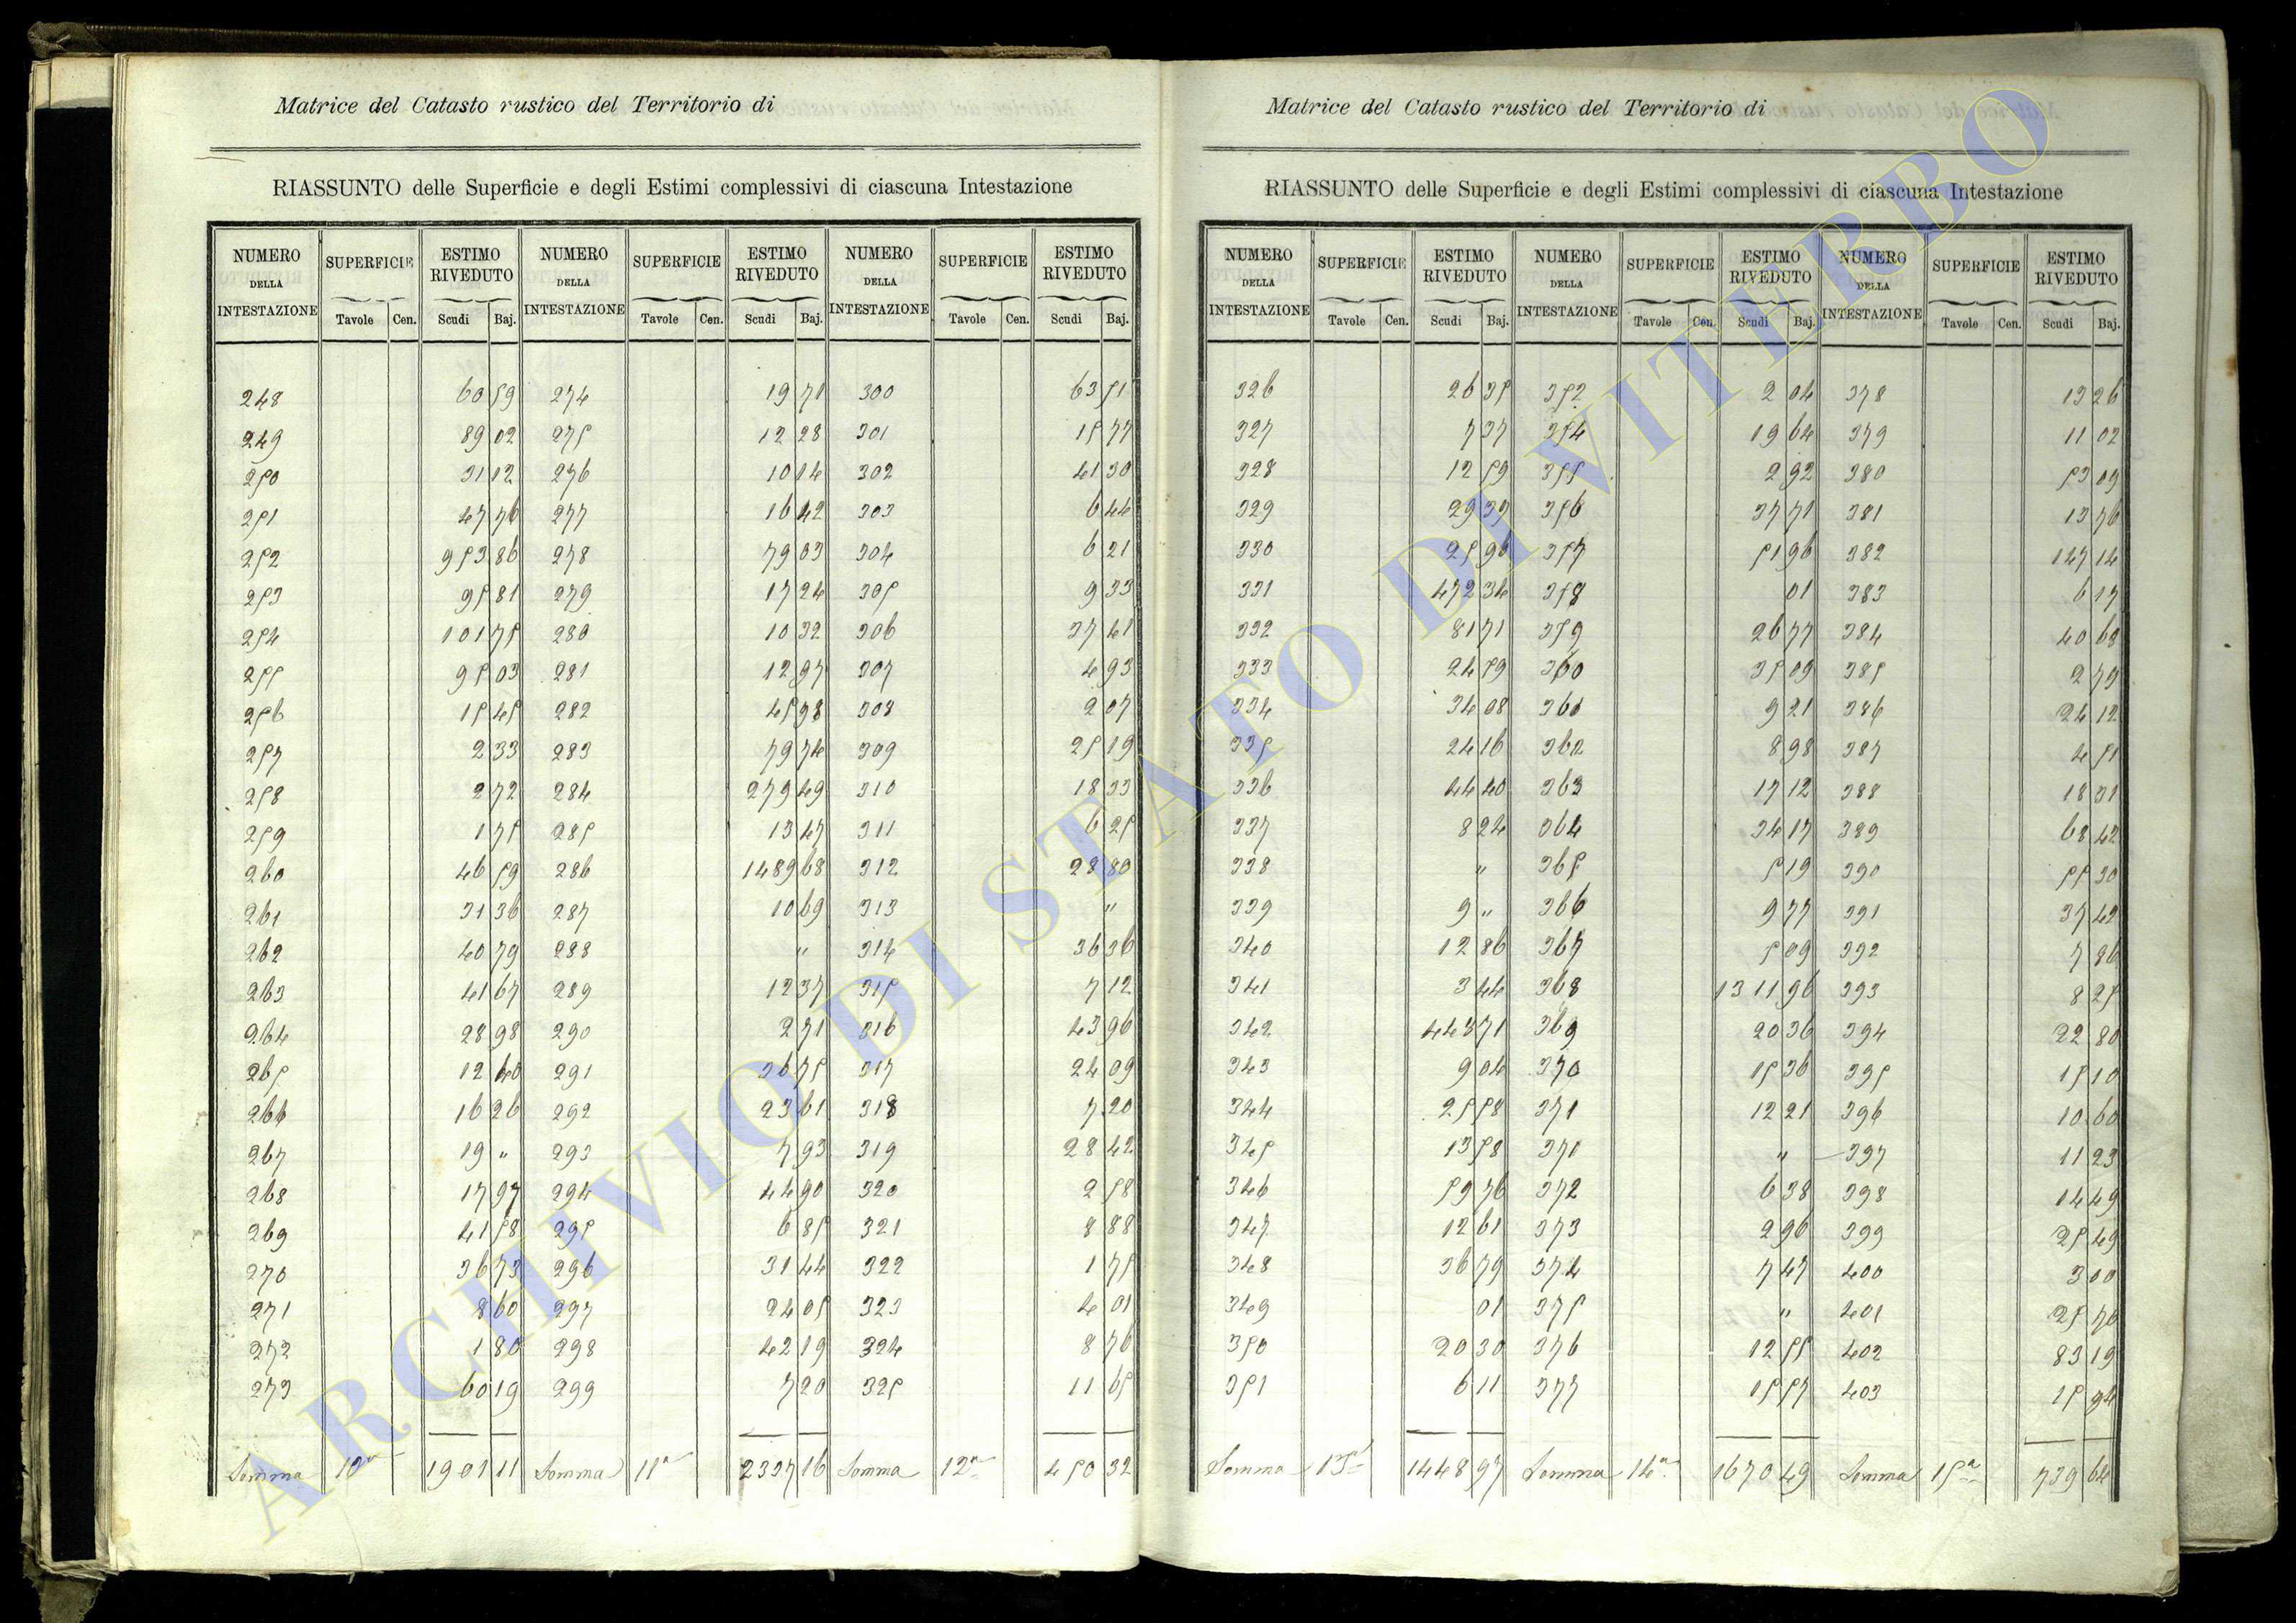 Matrice del Catasto rustico del Territorio di
RIASSUNTO delle Superficie e degli Estimi complessivi di ciascuna Intestazione
NUMERO DELLA INTESTAZIONE SUPERFICIE Tavole Cen. ESTIMO RIVEDUTO Scudi Baj. NUMERO DELLA INTESTAZIONE SUPERFICIE Tavole Cen. ESTIMO RIVEDUTO Scudi Baj. NUMERO DELLA INTESTAZIONE SUPERFICIE Tavole Cen. ESTIMO RIVEDUTO Scudi Baj.
248 60 59 274 19 71 300 63 51
249 89 02 275 12 28 301 15 77
250 31 12 276 10 14 302 41 30
251 47 76 277 16 42 303 6 44
252 953 86 278 79 03 304 6 21
253 95 81 279 17 24 305 9 33
254 101 75 280 10 32 306 37 41
255 95 03 281 12 97 307 4 93
256 15 45 282 45 98 308 2 07
257 2 33 283 79 74 309 25 19
258 2 72 284 279 49 310 18 33
259 1 75 285 13 47 311 6 25
260 46 59 286 1489 68 312 28 80
261 31 36 287 10 69 313 "
262 40 79 288 " 314 36 36
263 41 67 289 12 37 315 7 12
264 28 98 290 2 71 316 43 96
265 12 40 291 36 75 317 24 09
266 16 26 292 23 61 318 7 20
267 19 " 293 7 93 319 28 42
268 17 97 294 44 90 320 2 58
269 41 58 295 6 85 321 8 88
270 36 73 296 31 44 322 1 75
271 8 60 297 24 05 323 4 01
272 1 80 298 42 19 324 8 76
273 60 19 299 7 20 325 11 65
Somma 10a 1901 11 Somma 11a 2327 16 Somma 12a 450 32
Matrice del Catasto rustico del Territorio di
RIASSUNTO delle Superficie e degli Estimi complessivi di ciascuna Intestazione
NUMERO DELLA INTESTAZIONE SUPERFICIE Tavole Cen. ESTIMO RIVEDUTO Scudi Baj. NUMERO DELLA INTESTAZIONE SUPERFICIE Tavole Cen. ESTIMO RIVEDUTO Scudi Baj. NUMERO DELLA INTESTAZIONE SUPERFICIE Tavole Cen. ESTIMO RIVEDUTO Scudi Baj.
326 26 35 352 2 04 378 13 26
327 7 37 354 19 64 379 11 02
328 12 59 355 2 92 380 53 09
329 29 37 356 37 71 381 13 76
330 25 96 357 51 96 382 147 14
331 472 34 358 01 383 6 17
332 81 71 359 26 77 384 40 68
333 24 59 360 35 09 385 2 79
334 34 08 361 9 21 386 24 12
335 24 16 362 8 98 387 4 51
336 44 40 363 17 12 388 18 31
337 8 24 364 34 17 389 68 42
338 " 365 5 19 390 55 30
339 9 " 366 9 77 391 37 42
340 12 86 367 5 09 392 7 86
341 3 44 368 1311 96 393 8 25
342 443 71 369 20 36 394 22 80
343 9 04 370 15 36 395 15 10
344 25 58 371 12 21 396 10 60
345 13 58 371 " 397 11 23
346 59 76 372 6 38 398 14 49
347 12 61 373 2 96 399 25 49
348 36 79 374 7 47 400 3 00
349 01 375 " 401 25 76
350 20 30 376 12 55 402 83 19
351 6 11 377 15 57 403 15 94
Somma 13a 1448 97 Somma 14a 1670 49 Somma 15a 739 64
ARCHIVIO DI STATO DI VITERBO